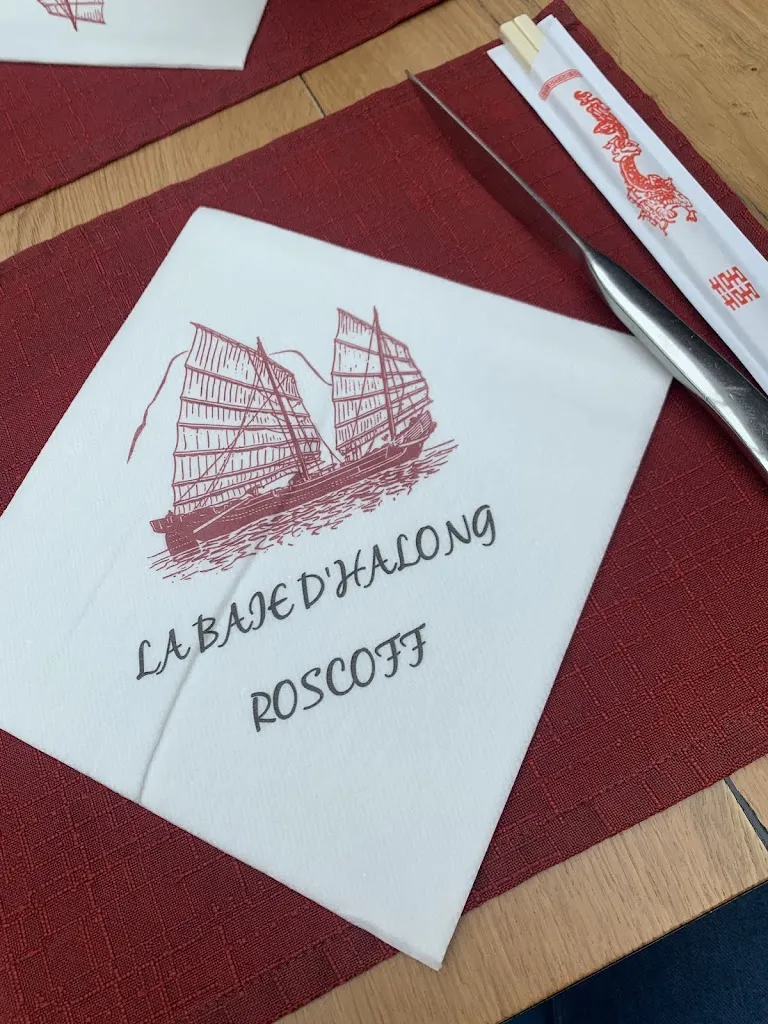 LA BAIE D'HALONG
ROSCOFF
囍